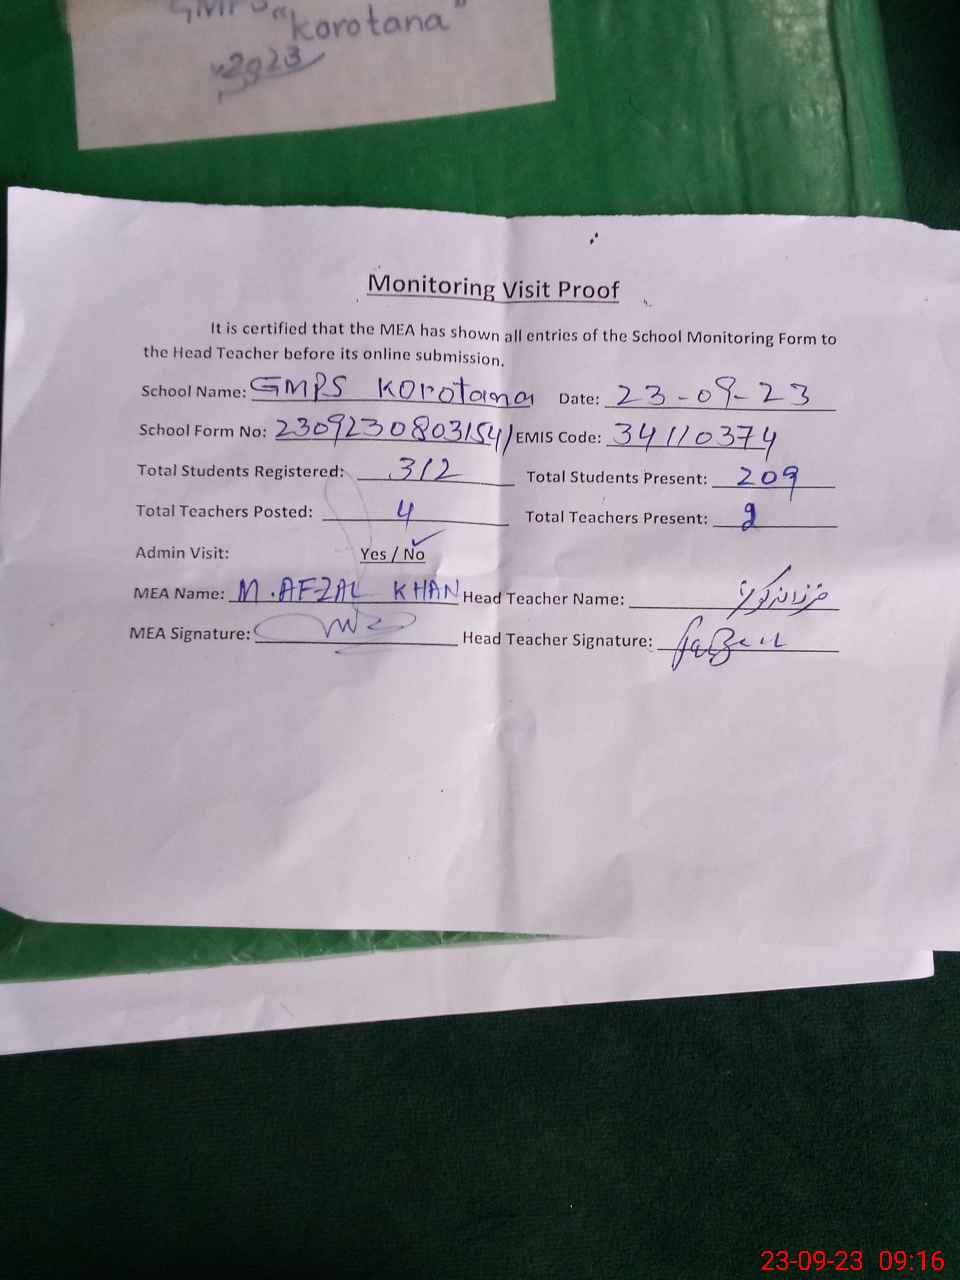 GMPS "Korotana"
2023
Monitoring Visit Proof
It is certified that the MEA has shown all entries of the School Monitoring Form to
the Head Teacher before its online submission.
School Name: GMPS Korotana Date: 23-09-23
School Form No: EMIS Code: 34110374
Total Students Registered: 312 Total Students Present: 209
Total Teachers Posted: 4 Total Teachers Present:
Admin Visit: Yes / No ✓
MEA Name: M.AFZAL KHAN Head Teacher Name: فرزانہ کوثر
MEA Signature: Head Teacher Signature:
23-09-23 09:16